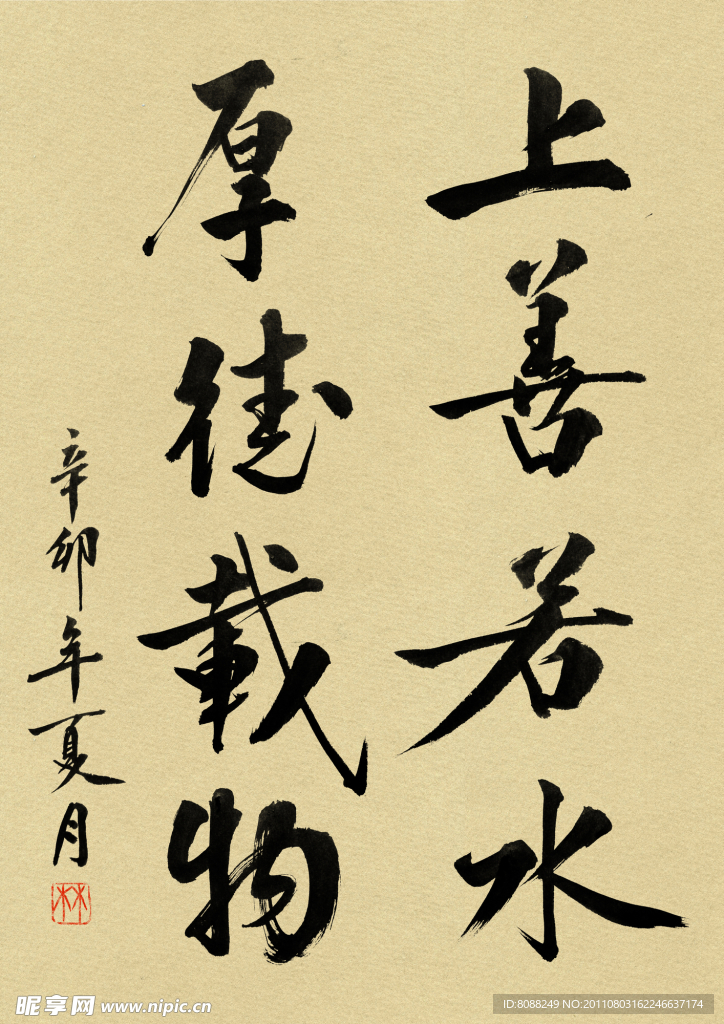 上善若水
厚德載物
辛卯年夏月
林
昵享网 www.nipic.cn
ID:8088249 NO:20110803162246637174